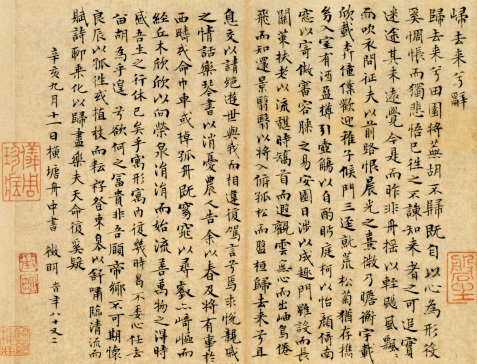 歸去來兮辭
歸去來兮田園將蕪胡不歸既自以心為形役
奚惆悵而獨悲悟已往之不諫知來者之可追實
迷途其未遠覺今是而昨非舟搖〻以輕颺風飄〻
而吹衣問征夫以前路恨晨光之熹微乃瞻衡宇載
欣載奔僮僕歡迎稚子候門三逕就荒松菊猶存攜
幼入室有酒盈樽引壺觴以自酌眄庭柯以怡顏倚南
窗以寄傲審容膝之易安園日涉以成趣門雖設而長
關策扶老以流憩時矯首而遐觀雲無心而出岫鳥倦
飛而知還景翳翳以將入撫孤松而盤桓歸去來兮且
息交以請絕遊世與我而相違復駕言兮焉求悅親戚
之情話樂琴書以消憂農人告余以春及將有事於
西疇或命巾車或棹孤舟既窈窕以尋壑亦崎嶇而
經丘木欣欣以向榮泉涓涓而始流善萬物之得時
感吾生之行休已矣乎寓形宇內復幾時曷不委心任去
留胡為乎遑〻兮欲何之富貴非吾願帝鄉不可期懷
良辰以孤往或植杖而耘耔登東皋以舒嘯臨清流而
賦詩聊乘化以歸盡樂夫天命復奚疑
辛亥九月十一日橫塘舟中書 徵明 時年八十又二